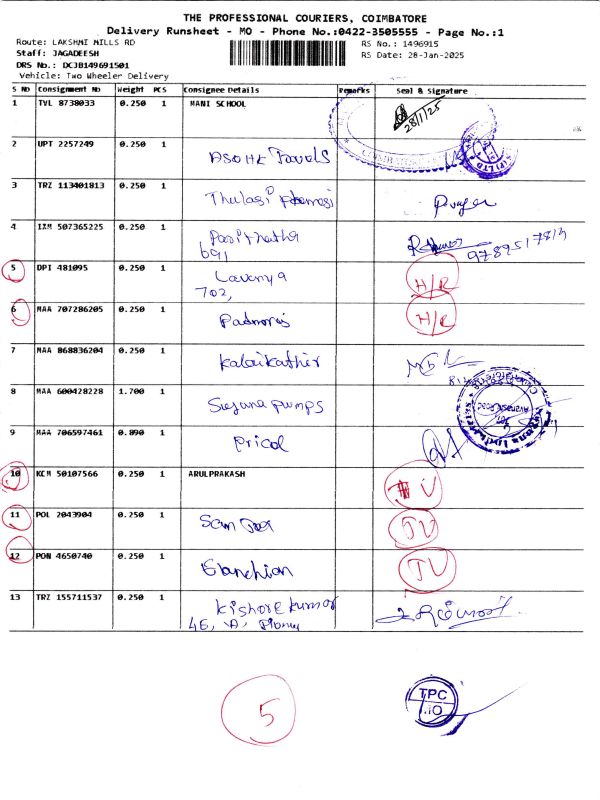 THE PROFESSIONAL COURIERS, COIMBATORE
Delivery Runsheet - MO - Phone No.:0422-3505555 - Page No.:1
Route: LAKSHMI MILLS RD RS No.: 1496915
Staff: JAGADEESH RS Date: 28-Jan-2025
DRS No.: DCJB149691501
Vehicle: Two Wheeler Delivery
S No Consignment No Weight PCS Consignee Details Remarks Seal & Signature
1 TVL 8738033 0.250 1 MANI SCHOOL 28/1/25
2 UPT 2257249 0.250 1 Travels
3 TRZ 113401813 0.250 1 Thulasi
4 IXM 507365225 0.250 1
691
5 DPI 481095 0.250 1 Lavanya H/R
702,
6 MAA 707286205 0.250 1 H/R
7 MAA 868836204 0.250 1 Kalaikathir
8 MAA 600428228 1.700 1 Pumps
9 MAA 706597461 0.890 1 Pricol
10 KCM 50107566 0.250 1 ARULPRAKASH
11 POL 2043904 0.250 1 IV
12 PON 4650740 0.250 1 IV
13 TRZ 155711537 0.250 1 Kishore kumar
4E, A,
5
TPC
MO